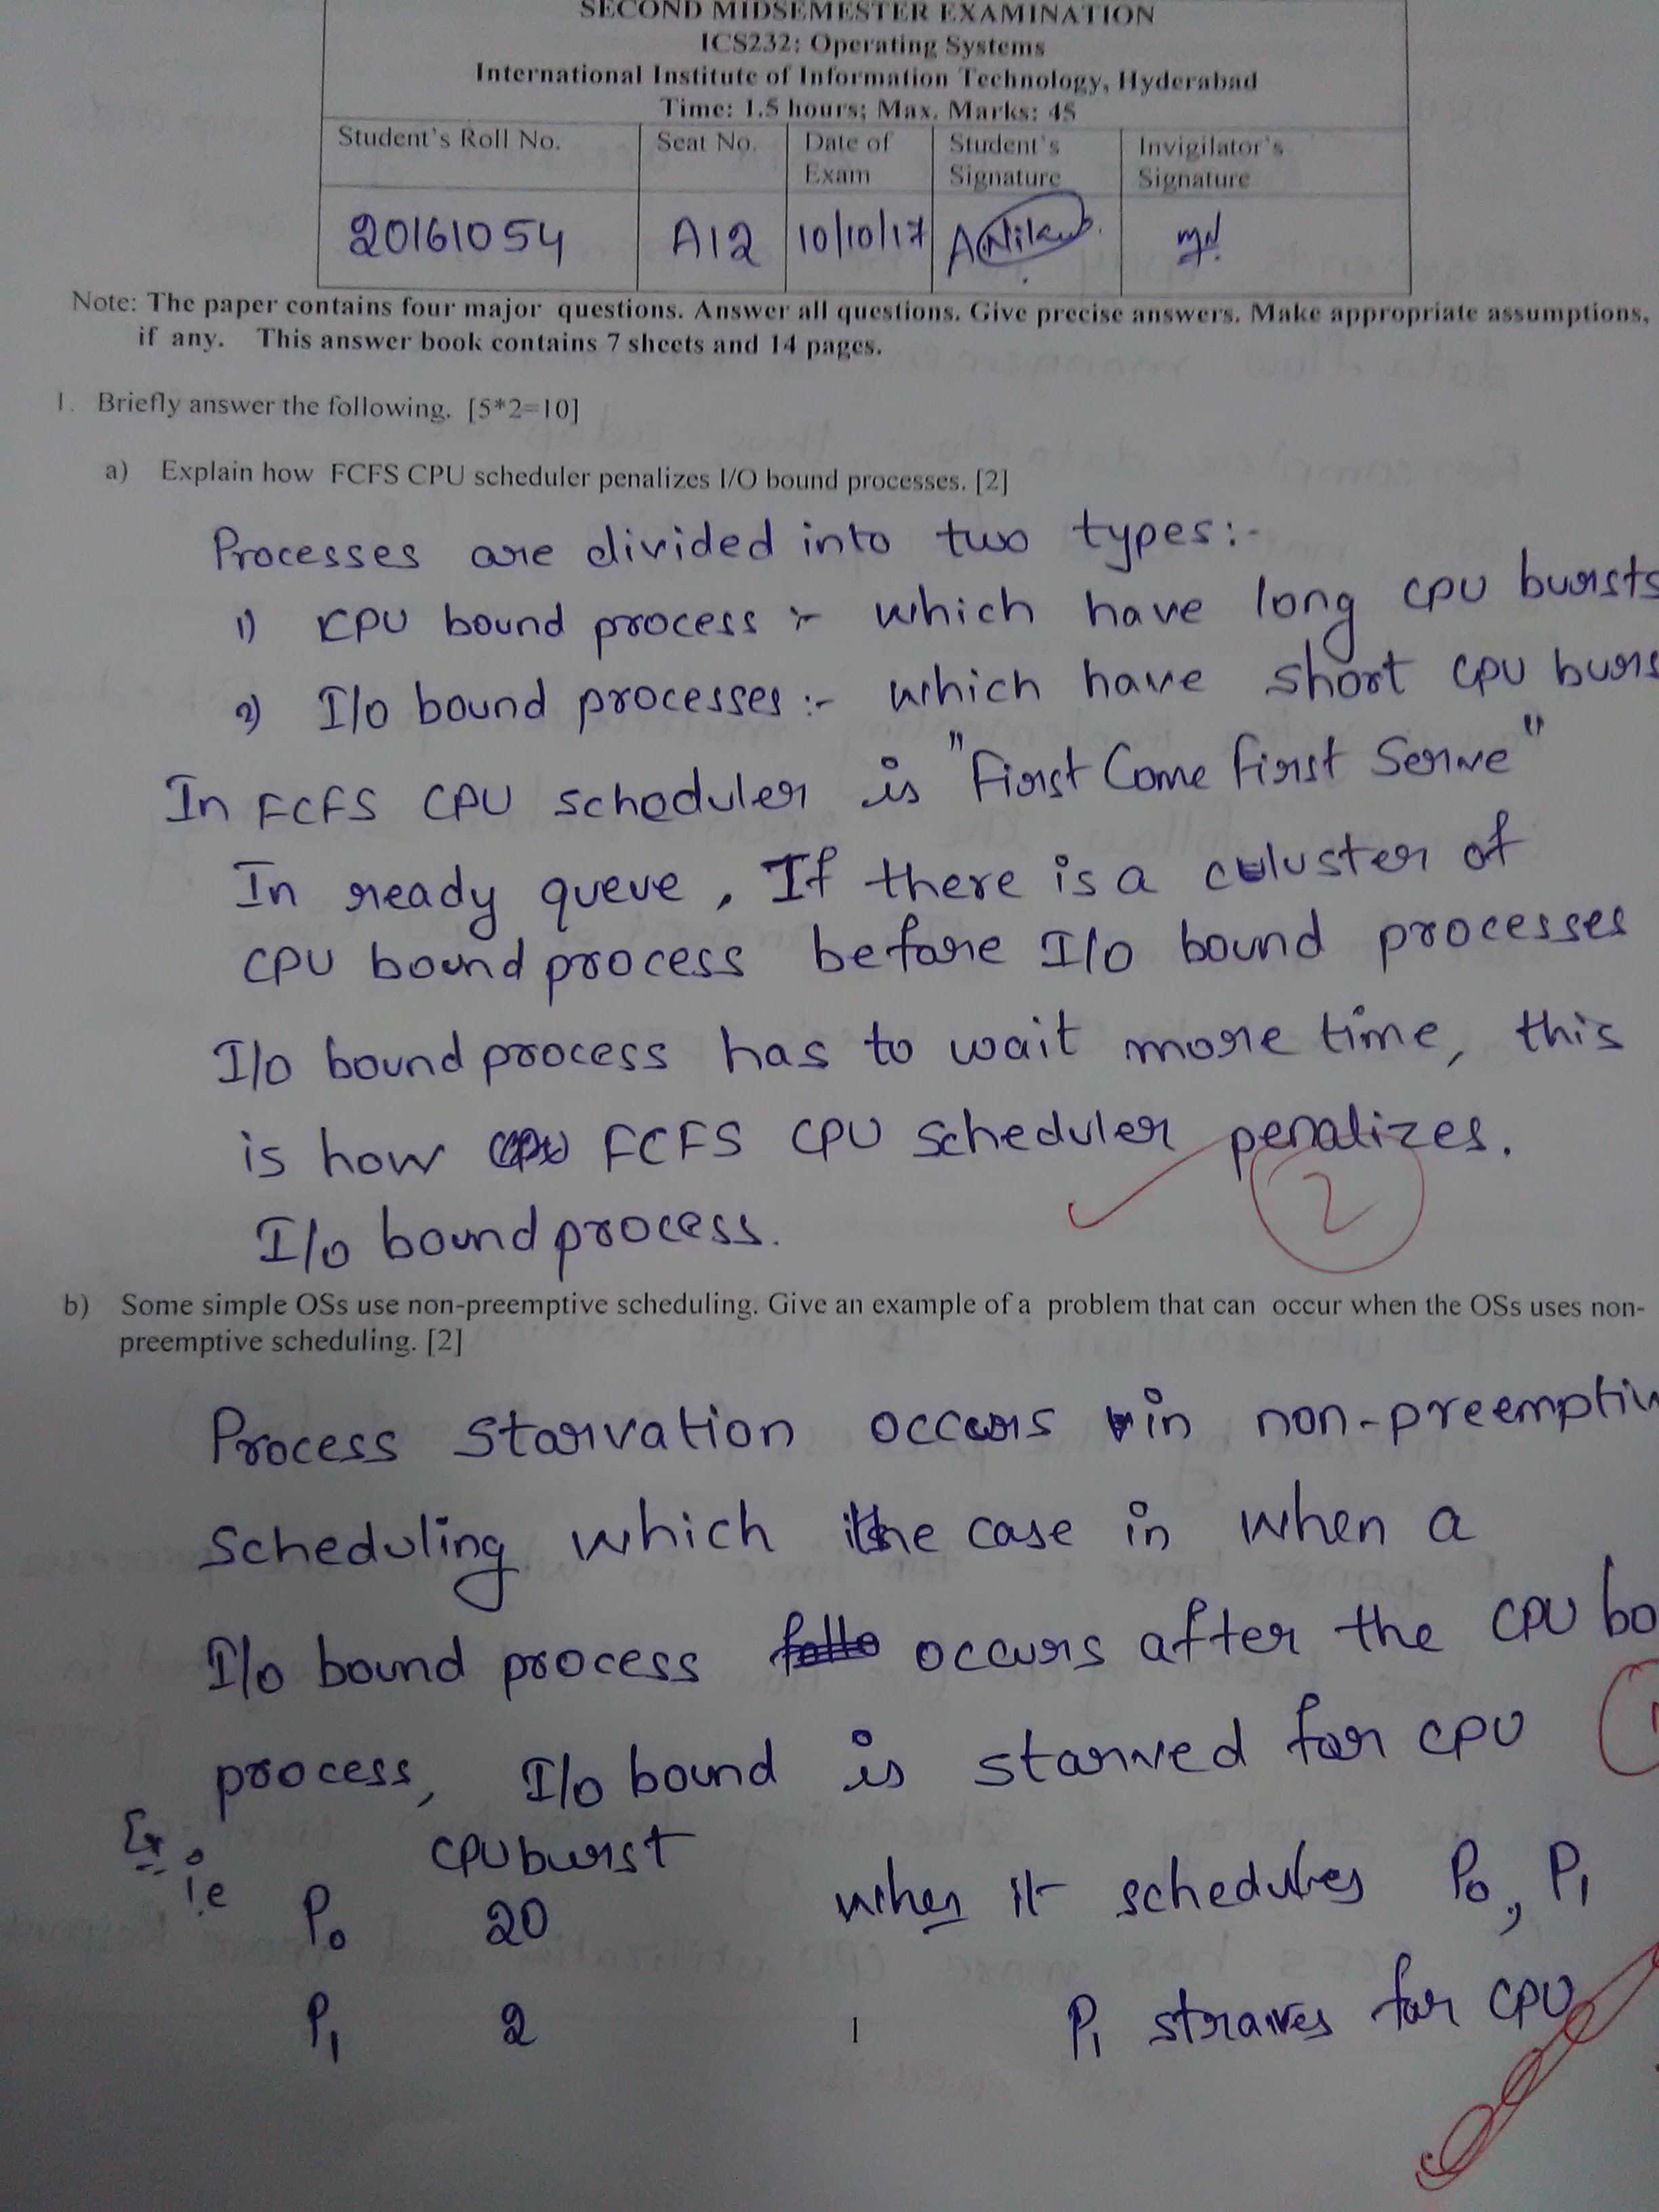 SECOND MIDSEMESTER EXAMINATION
ICS232: Operating Systems
International Institute of Information Technology, Hyderabad
Time: 1.5 hours; Max. Marks: 45
Student's Roll No. Seat No. Date of Exam Student's Signature Invigilator's Signature
20161054 A12 10/10/17
Note: The paper contains four major questions. Answer all questions. Give precise answers. Make appropriate assumptions,
if any. This answer book contains 7 sheets and 14 pages.
1. Briefly answer the following. [5*2=10]
a) Explain how FCFS CPU scheduler penalizes I/O bound processes. [2]
Processes are divided into two types:-
1) CPU bound process :- which have long CPU bursts
2) I/O bound processes :- which have short CPU burs
In FCFS CPU scheduler is "First Come First Serve"
In ready queue, If there is a cluster of
CPU bound process before I/O bound processes
I/O bound process has to wait more time, this
is how FCFS CPU scheduler penalizes.
I/O bound process.
2
b) Some simple OSs use non-preemptive scheduling. Give an example of a problem that can occur when the OSs uses non-
preemptive scheduling. [2]
Process starvation occurs in non-preemptiv
scheduling which the case in when a
I/O bound process occurs after the CPU bo
process, I/O bound is starved for CPU
Ex i.e CPU burst
P0 20 when it schedules P0, P1
P1 2 P1 straives for CPU
1